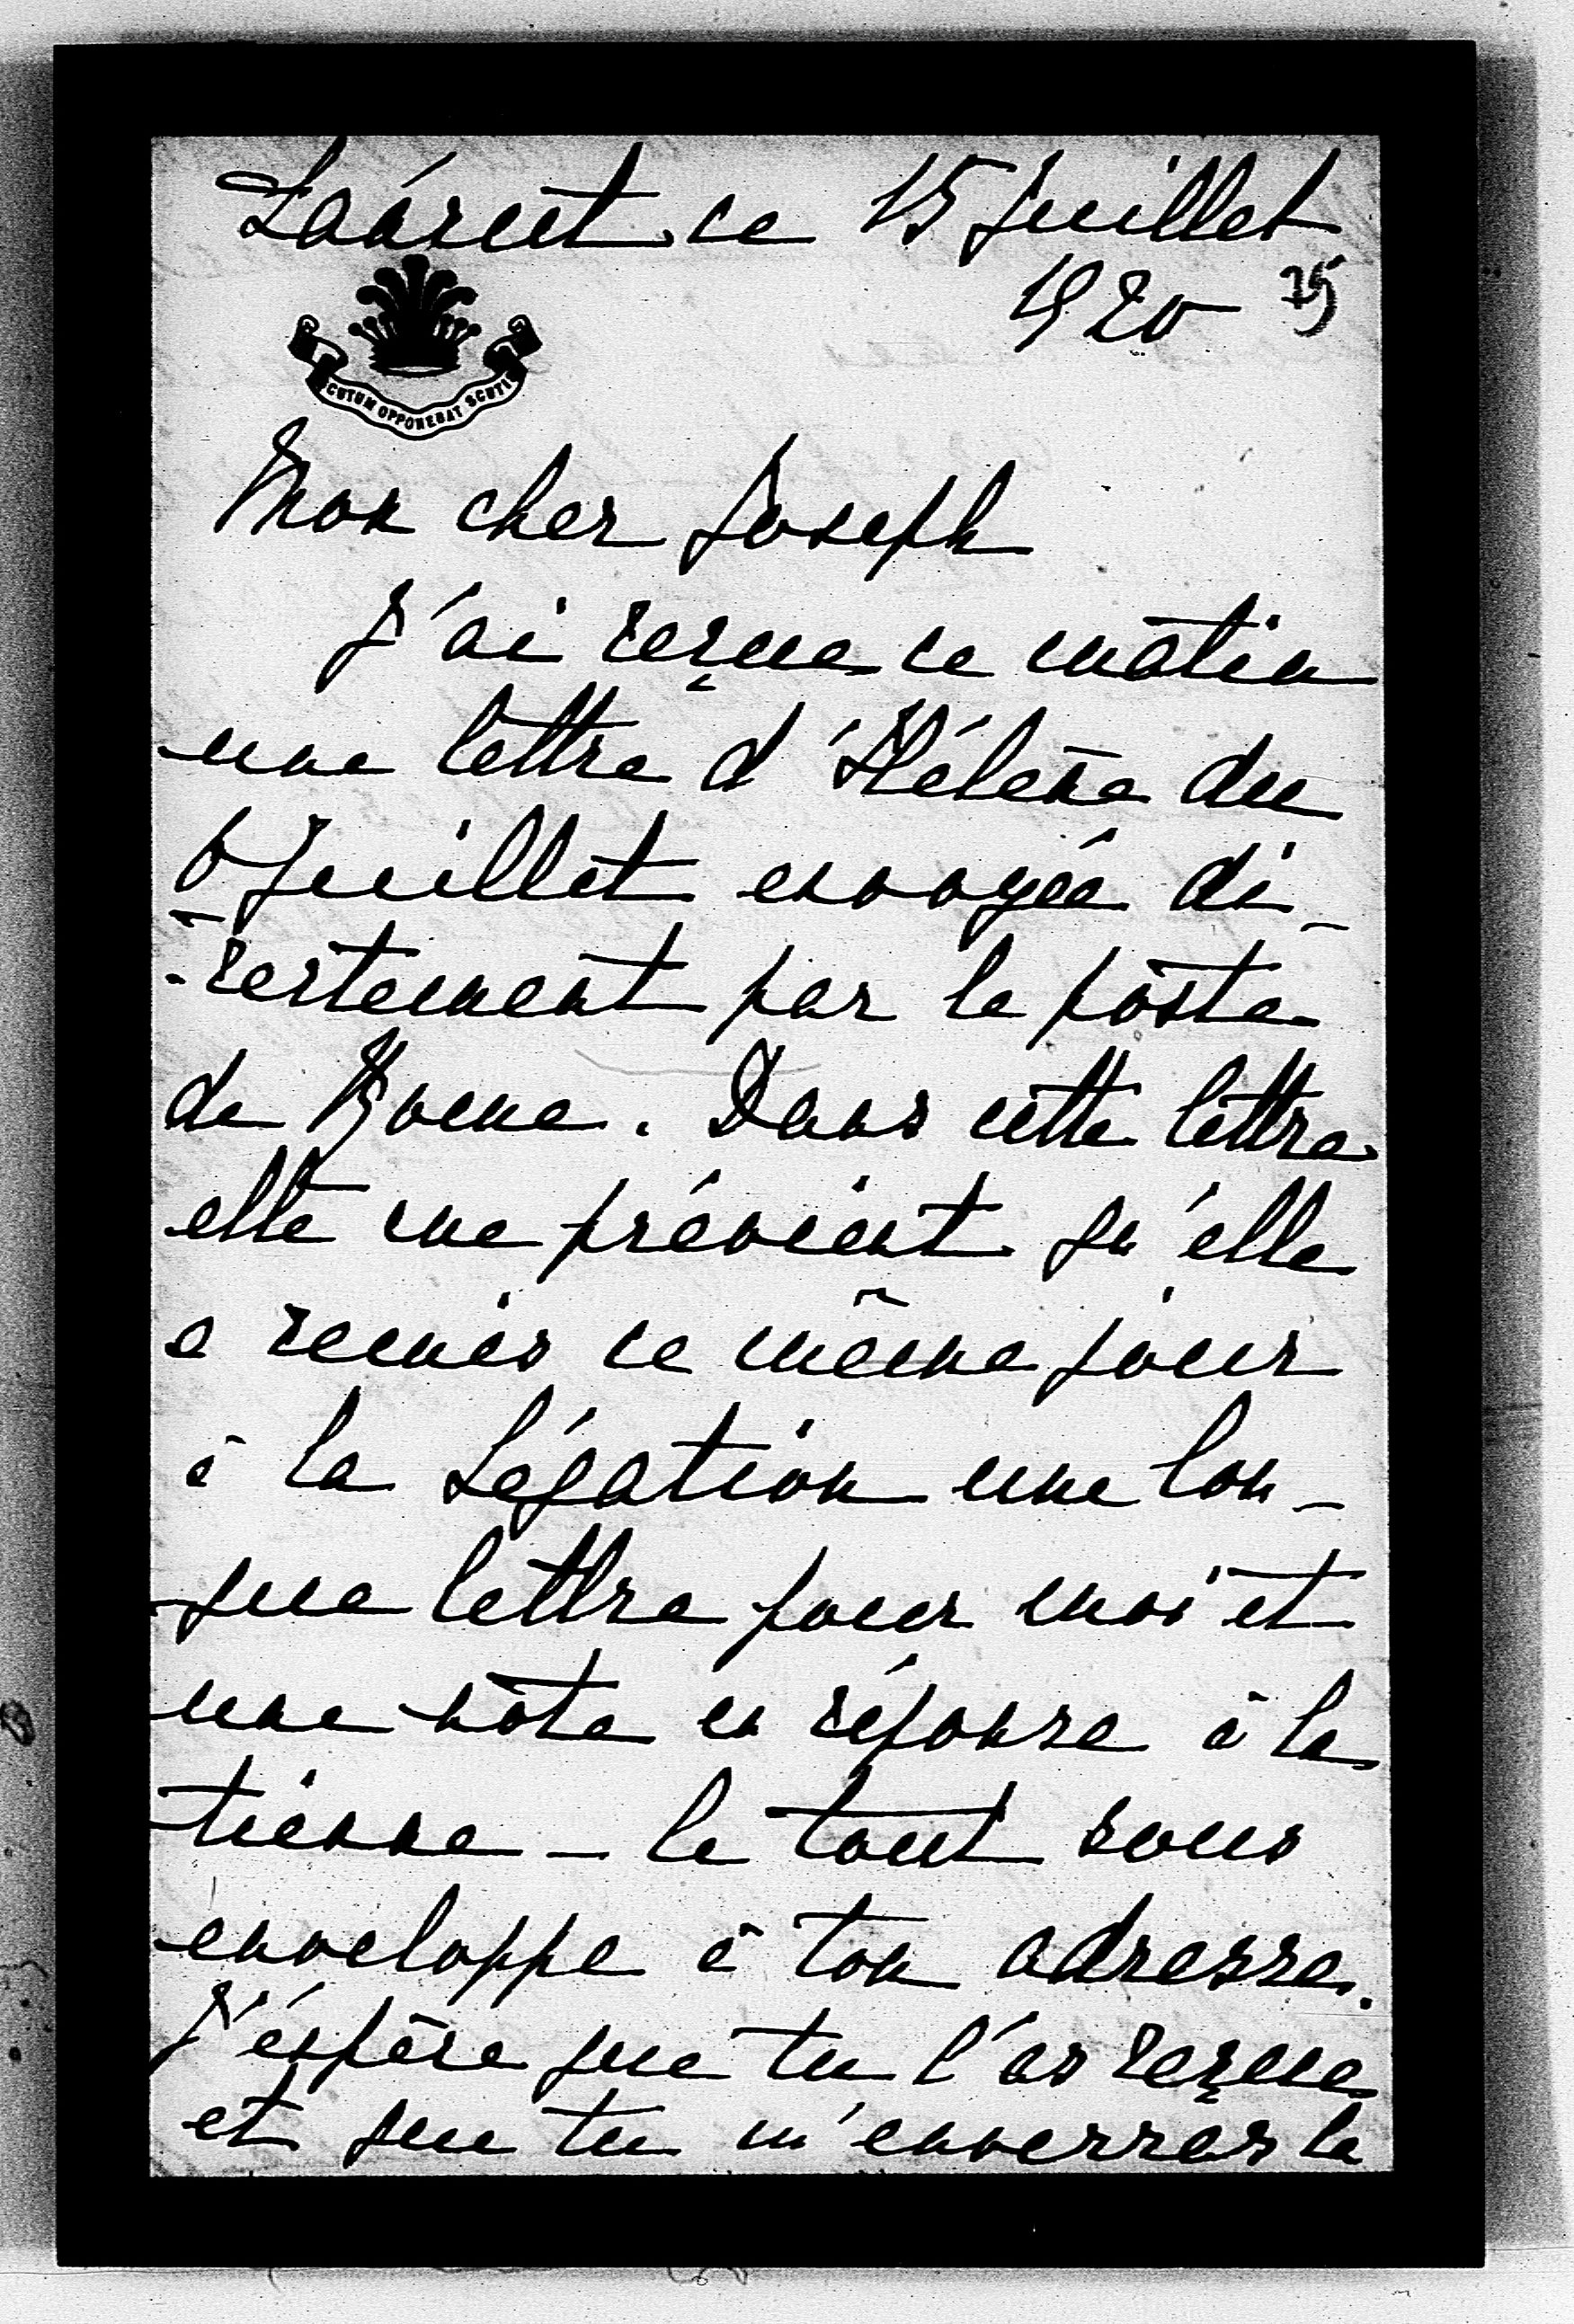 Łańcut ce 15 Juillet
1920
75
SCUTUM OPPONEBAT SCUTIS
Mon cher Joseph
J'ai reçue ce matin
une lettre d'Hélène du
6 Juillet envoyée di-
-rectement par la poste
de Rome. Dans cette lettre
elle me prévient qu'elle
a remis ce même jour
à la Légation une lon-
gue lettre pour moi et
une note en réponse à la
tienne - le tout sous
enveloppe à ton adresse.
J'éspère que tu l'as reçue
et que tu m'enverras la